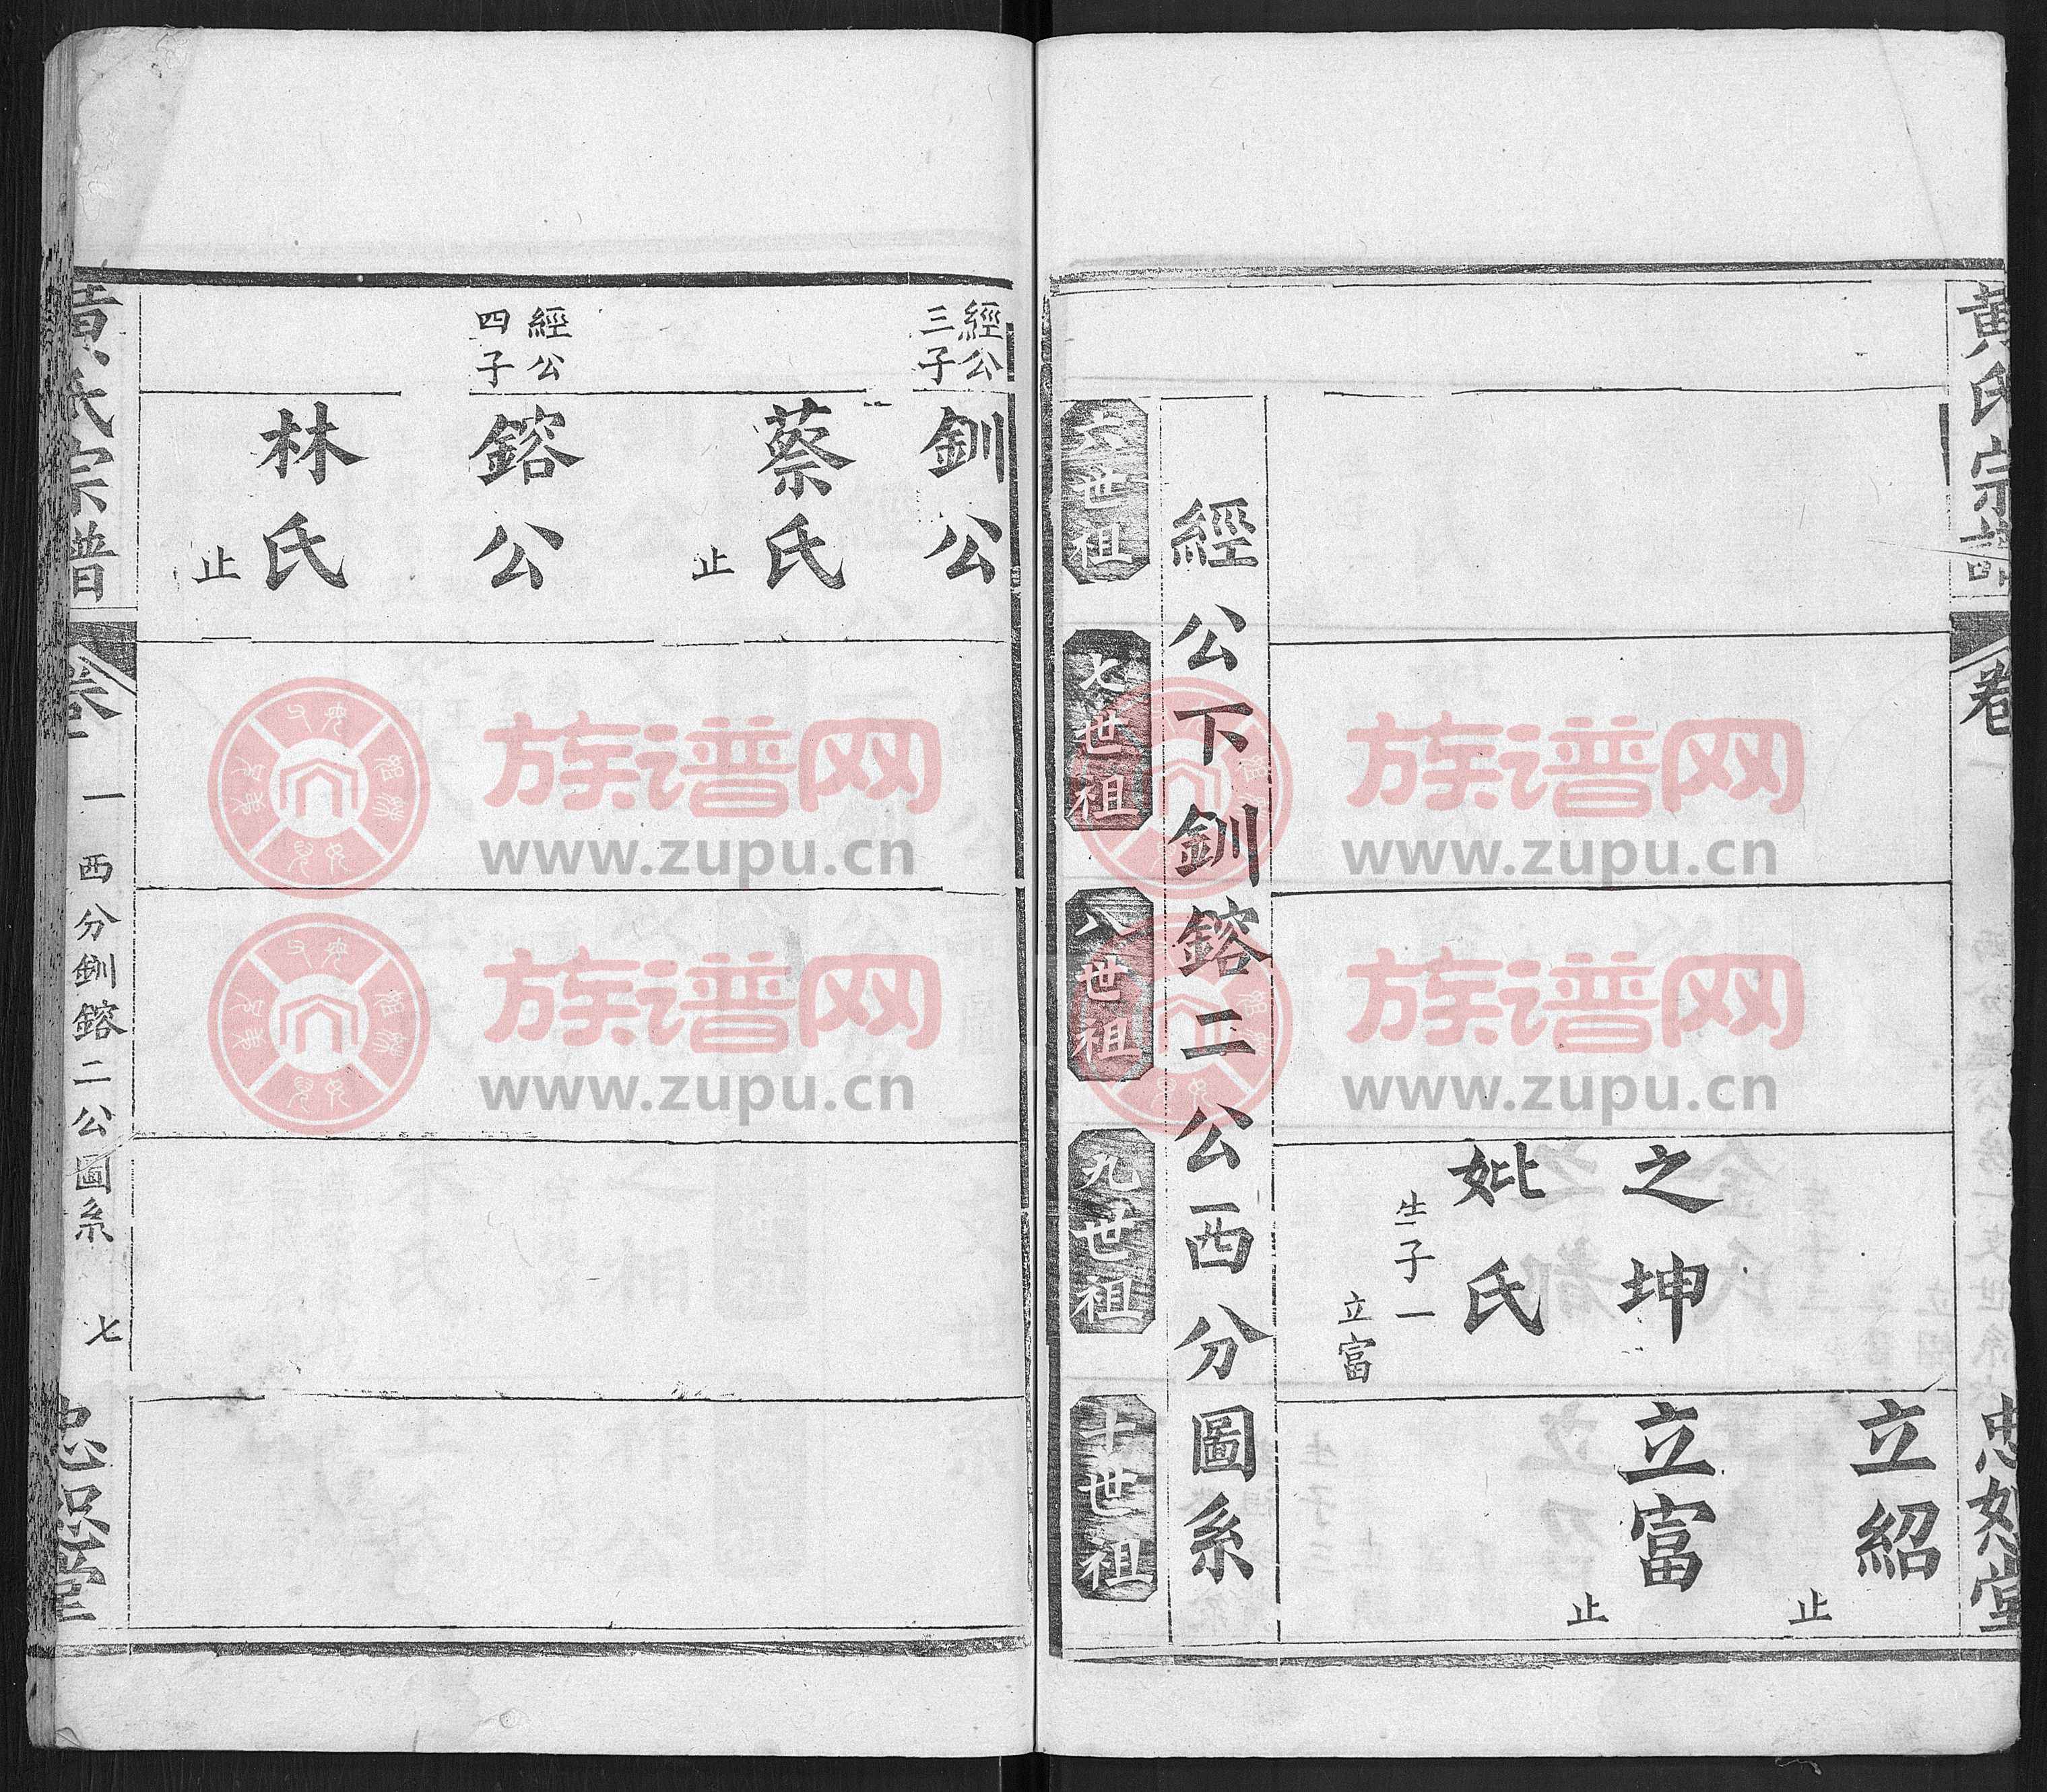 黃氏宗譜
卷一
忠恕堂
立紹
止
之坤
妣氏
生子一
立富
立富
止
經公下釧鎔二公西分圖系
六世祖
七世祖
八世祖
九世祖
十世祖
經公
三子
釧公
蔡氏
止
經公
四子
鎔公
林氏
止
黃氏宗譜
卷一
西分釧鎔二公圖系
七
忠恕堂
族谱网
www.zupu.cn
族谱网
www.zupu.cn
族谱网
www.zupu.cn
族谱网
www.zupu.cn